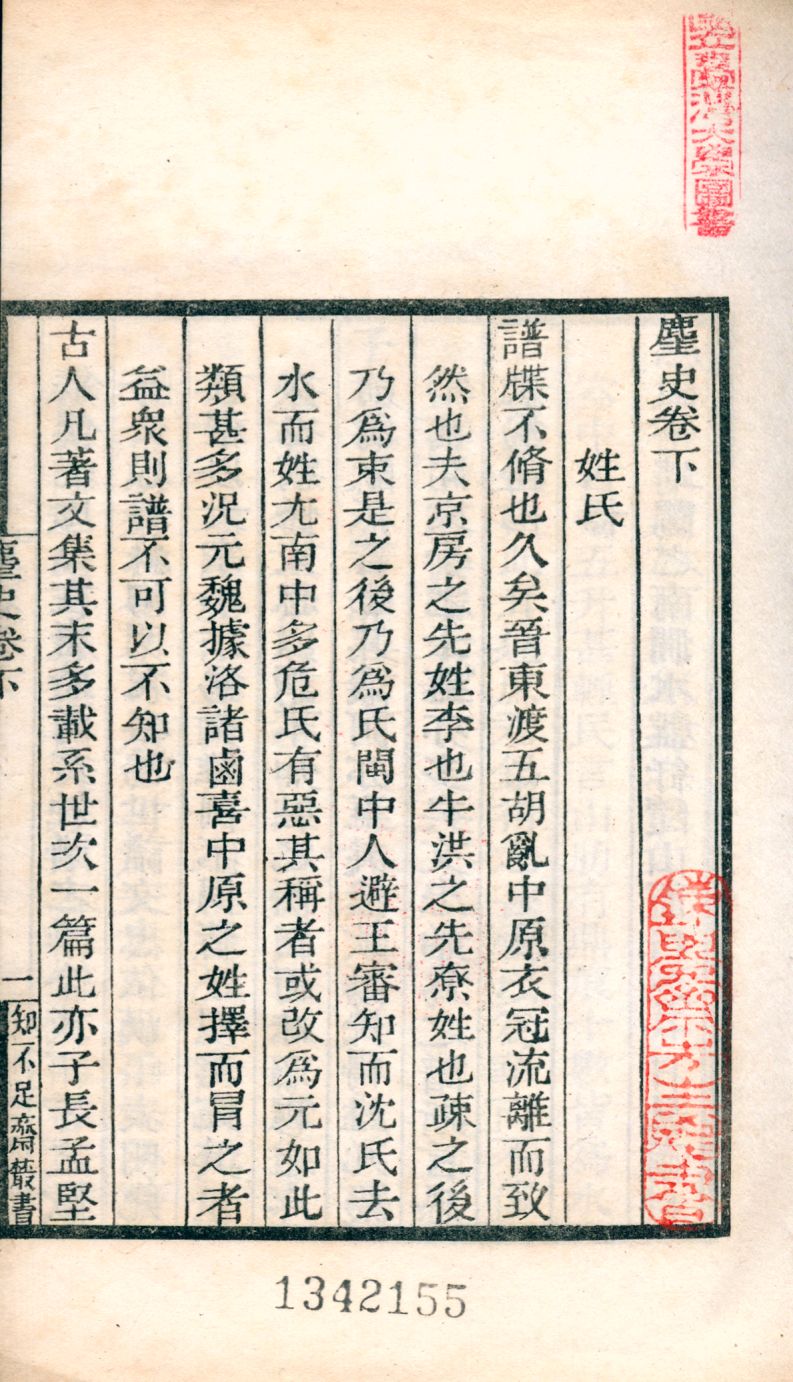 麈史卷下
姓氏
譜牒不脩也久矣晉東渡五胡亂中原衣冠流離而致
然也夫京房之先姓李也牛洪之先尞姓也疎之後
乃爲束是之後乃爲氏閩中人避王審知而沈氏去
水而姓尢南中多危氏有惡其稱者或改爲元如此
類甚多況元魏據洛諸鹵喜中原之姓擇而冐之者
益衆則譜不可以不知也
古人凡著文集其末多載系世次一篇此亦子長孟堅
麈史卷下
一
知不足齋叢書
1342155